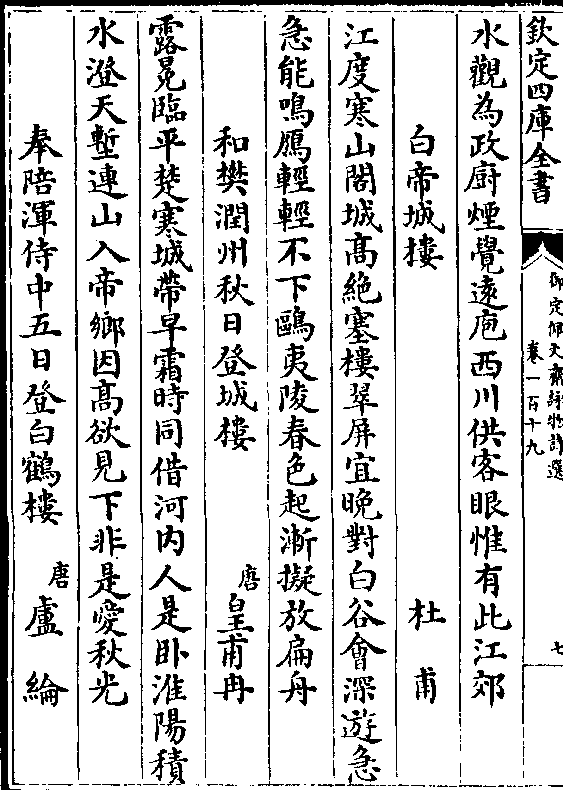 欽定四庫全書
御定佩文齋詠物詩選
卷一百十九
七
水觀為政厨煙覺遠庖西川供客眼惟有此江郊
白帝城樓 杜甫
江度寒山閣城髙絶塞樓翠屏宜晚對白谷會深遊急
急能鳴鴈輕輕不下鷗夷陵春色起漸擬放扁舟
和樊潤州秋日登城樓 唐皇甫冉
露冕臨平楚寒城帶早霜時同借河内人是卧淮陽積
水澄天塹連山入帝鄉因髙欲見下非是愛秋光
奉陪渾侍中五日登白鶴樓 唐盧綸